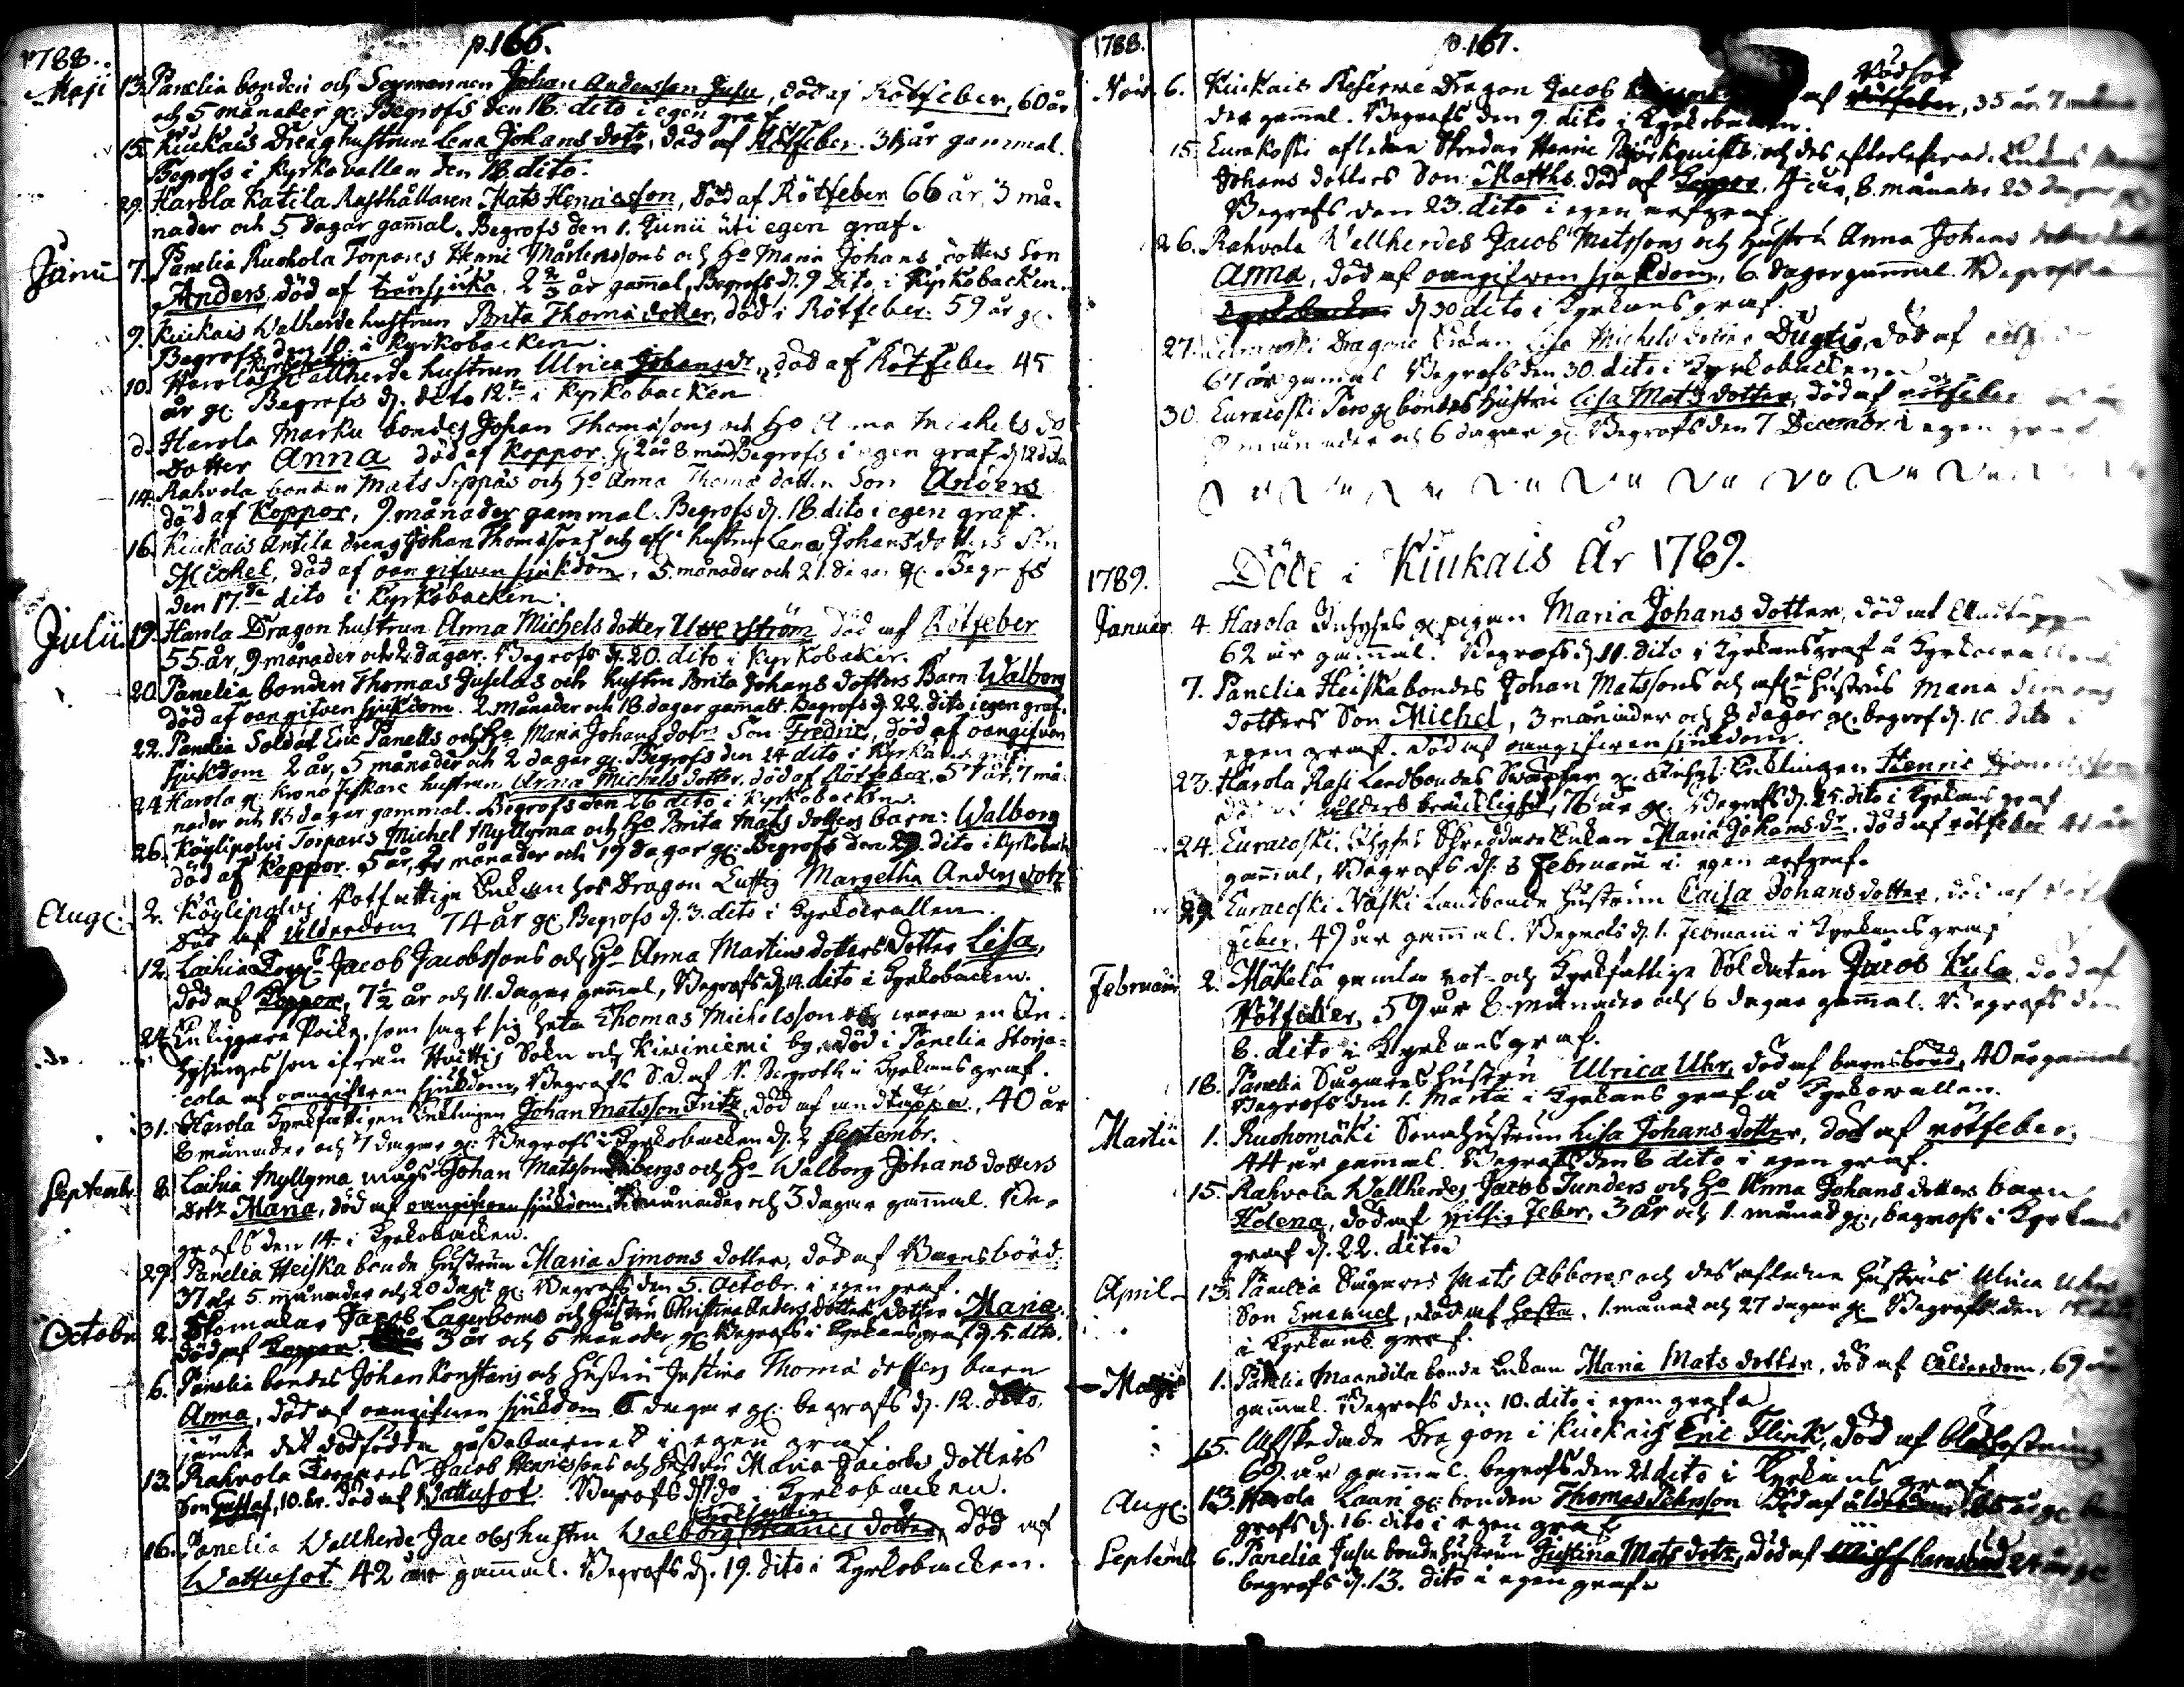 p.166.
1788.
Maji 13. Panelia bonden och Sexmannen Johan Andersson Jusu, död i Rötfeber, 60 år
och 5 månader gl: Begrofs den 18. dito i egen graf
15. Kiukais Dräng hustrun Lena Johans dotr, död af Rötfeber. 31 år gammal.
Begrofs i Kyrkovallen den 18. dito.
29. Harola Katila Rusthållaren Mats Henricsson, död af Rötfeber 66 år, 3 må-
nader och 5 dagar gamal. Begrofs den 1. Junii uti egen graf.
Junii 7. Panelia Ruohola Torpares Henric Mårtenssons och Ho Maria Johans dotters Son
Anders, död af transjuka. 2 2/3 år gamal, Begrofs d. 9 Dito i Kyrkobacken.
9. Kiukais Walherde hustrun Brita Thomæ dotter, död i Rötfeber. 59 år gl.
Begrofs den 10. i Kyrkobacken.
10. Harola Wallherde hustrun Ulrica Johansdr, död af Rötfeber 45
år gl: Begrofs d. dito 12te i Kyrkobacken
d. Harola Marku bondes Johan Thomassons och Ho Anna Michels do
dotter Anna död af Koppor. gl 2 år 8. mån Begrofs i egen graf d 12 dito
14. Rahvola bonden Mats Seppäs och Ho Anna Thomæ dotters Son Anders
död af Koppor, 9. månader gammal. Begrofs d. 18. dito i egen graf.
16. Kiukais Antila dreng Johan Thomassons och afl: hustrus Lena Johans dotters Son
Michel, död af oangifven sjukdom, 5. månader och 21. dagar gl: Begrofs
den 17.de dito i Kyrkobacken.
Julii 19. Harola Dragon hustrun Anna Michels dotter Utterström död af Rötfeber
55 år, 9 månader och 2 dagar. Begrofs d. 20. dito i Kyrkobacken.
20. Panelia bonden Thomas Juselas och hustru Brita Johans dotters Barn: Walborg
död af oangifven sjukdom. 2 månader och 18. dagar gamalt. Begrofs d. 22. dito i egen graf.
22. Panelia Soldat Eric Panells och Ho Maria Johans dotrs Son Fredric, död af oangifven
sjukdom 2 år, 5 månader och 2 dagar gl. Begrofs den 24 dito i Kyrkans graf.
24. Harola gl: Krono fiskare hustrun Anna Michels dotter. död af Rötfeber. 57 år, 7 må-
nader och 13 dagar gammal. Begrofs den 26 dito i Kyrkobacken.
26. Köylipolvi Torpares Michel Myllyma och Ho Brita Mats dotters barn: Walborg
död af Koppor. 5 år, månader och 19 dagar gl: Begrofs den 29. dito i Kyrkoback
Aug: 2. Köylipolvi Rotfattiga Enkan hos Dragon Luttig Margetha Anders dotr
död af Ålderdom 74 år gl: Begrofs d. 3. dito i Kyrkovallen.
12. Laihia Torp: Jacob Jacobssons och Ho Anna Martins dotters dotter Lisa,
död af Koppor, 7 1/2 år och 11. dagar gamal, Begrofs d. 14. dito i Kyrkobacken.
24. En tiggare Poike, som sagt sig heta Thomas Michelsson och wara en In-
hysinges son ifrån Hvittis Sokn och Kiviniemi by, död i Panelia Storja-
cola af oangifven sjukdom, Begrofs S.D. af N. Begroth i Kyrkans graf.
31. Harola Kyrkfattigen Enklingen Johan Matsson Frits, död af andtäppa, 40 år
8 månader och 7 dagar gl: Begrofs i Kyrkobacken d. 2 Septembr.
Septembr 8. Laihia Myllyma mågs Johan Matsson bergs och Ho Walborg Johans dotters
Dotr Maria, död af oangifven sjukdom, månader och 3 dagar gammal. Be-
grofs den 14 i Kyrkobacken.
29. Panelia Heiska bonde hustrun Maria Simons dotter, död af Barnsbörd.
37 år 5 månader och 20 dagr gl. Begrofs den 5. Octobr. i egen graf.
Octobr 2. Stomakar Jacob Lagerboms och hustru Christina Anders dotters dotter Maria,
död af Koppor. 3 år och 6 månader gl Begrofs i Kyrkans graf d. 5. dito.
6. Panelia bondes Johan Konstaris och hustru Justina Thomæ dotters barn
Anna, död af oangifven sjukdom 6 dagar gl: begrofs d. 12. dito,
jämte det dödfödda gossebarnet i egen graf
13. Rahvola Torpares Jacob Henrics sons och hustru Maria Jacobs dotters
Son Gustaf, 10. år. död af Wattusot. Begrofs d. do i Kyrkobacken.
16. Panelia Wallherde Jacobs hustru Walborg Henrics dotter, död af
Wattusot 42 år gammal. Begrofs d. 19. dito i Kyrkobacken.
p.167.
1788.
Nov. 6. Kiukais Reserve Dragon Jacob af Rödsot, 35 år 7
dar gamal. Begrofs den 9. dito i Kyrkobacken.
15. Eurakoski afledne Skredar Henric Björkquists och des efterlefvande Enkas
Johans dotters Son: Matths. död af Koppor, 4 år, 8. månader 23 dagar
Begrofs den 23. dito i egen arfgraf
26. Rahvola Wallherdes Jacob Matssons och hustru Anna Johans
Anna, död af oangifven sjukdom, 6. dagar gammal. Begrofs
d 30 dito i Kyrkans graf.
27. Dragone Enkan Lisa Michels dotter Dugtig, död af
61 år gamal Begrofs den 30. dito i Kyrkobacken
30. Euracoski Pero gl: bondes hustru Lisa Mats dotter, död af rötfeber
månader och 6 dagar gl. Begrofs den 7 Decembr. i egen graf
Döde i Kiukais År 1789.
1789.
Januar. 4. Harola Inhyses gl pigan Maria Johans dotter, död af Andtäppa
62 år gammal. Begrofs d 11. dito i Kyrkans graf å Kyrkovallen
7. Panelia Heiska bondes Johan Matssons och afl: hustrus Maria Simons
dotters Son Michel, 3 månader och 8 dagar gl. begrof d. 1. dito i
egen graf. död af oangifven sjukdom.
23. Harola Rasi Landbondes Swärfar gl. Inhys. Enklingen Henric
död af ålders bräcklighet, 76 år gl. Begrofs d. 25. dito i Kyrkans graf
24. Euracoski, Inhyses Skreddare Enkan Maria Johans dr, död af rötfeber 41 år
gammal, Begrofs d. 8 Februarii i egen arfgraf.
29. Euracoski Naski Landbonde hustrun Caisa Johans dotter, död af röt
feber, 49 år gammal. Begrofs d. 1. Februarii i Kyrkans graf
Februarii 2. Mäkelä gamla rot- och Kyrkfattige Soldaten Jacob Kula död af
Rötfeber, 59 år 8 månader och 6 dagar gammal. Begrofs den
8. dito i Kyrkans graf.
18. Panelia Sågares hustru Ulrica Uhr, död af barnsbörd, 40 år gammal
Begrofs den 1. Martii i Kyrkans graf å Kyrkovallen.
Martii 1. Ruohomäki Sonahustrun Lisa Johans dotter, död af rötfeber,
44 år gammal. Begrofs den 8 dito i egen graf.
15. Rahvola Wallherdes Jacob Tunders och Ho Anna Johans dotters barn
Helena, död af hittsig feber, 3 år och 1. månad gl:, begrofs i Kyrkans
graf d. 22. dito
April 13. Panelia Sågares Mats Abboros och des afledne hustrus Ulrica Uhrs
Son Emanuel, död af hosta, 1. månad och 27 dagar gl Begrofs den
i Kyrkans graf.
Maji 1. Panelia Maandila bonde Enkan Maria Mats dotter, död af ålderdom, 69 år
gammal. Begrofs den 10. dito i egen graf
15. Afskedade Dragon i Kiukais Eric Flink, död af blodhostning
69. år gammal. begrofs den 21 dito i Kyrkans graf
Aug: 13. Harola Laari gl: bonden Thomas Johnson död af ålderdom gl: be-
grofs d. 16. dito i egen graf
Septemb 6. Panelia Jusu bonde hustrun Justina Mats dotr, död af barnsbörd 24 år gl
begrofs d. 13. dito i egen graf